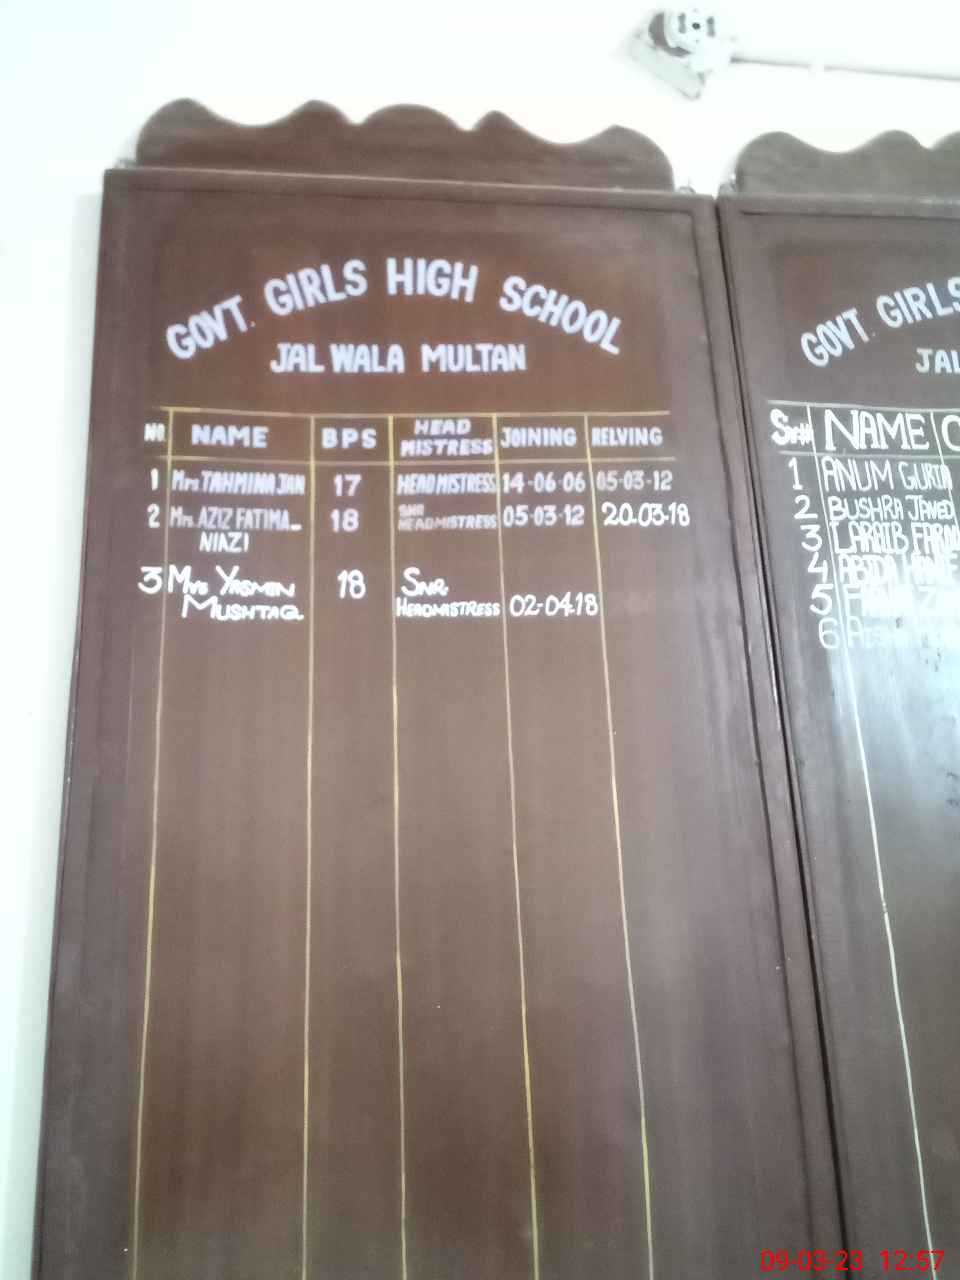 GOVT. GIRLS HIGH SCHOOL
JAL WALA MULTAN
NO NAME BPS HEAD MISTRESS JOINING RELVING
1 Mrs TAHMINA JAN 17 HEAD MISTRESS 14-06-06 05-03-12
2 Mrs. AZIZ FATIMA 18 SNR HEADMISTRESS 05-03-12 20.03-18
NIAZI
3 Mrs YASMIN 18 SNR
MUSHTAQ HEADMISTRESS 02-04.18
GOVT. GIRLS
JAL
Sr# NAME
1 ANUM
2 BUSHRA JAVED
3 LARAIB
4 ABIDA HANIF
5
6
09-03-23 12:57